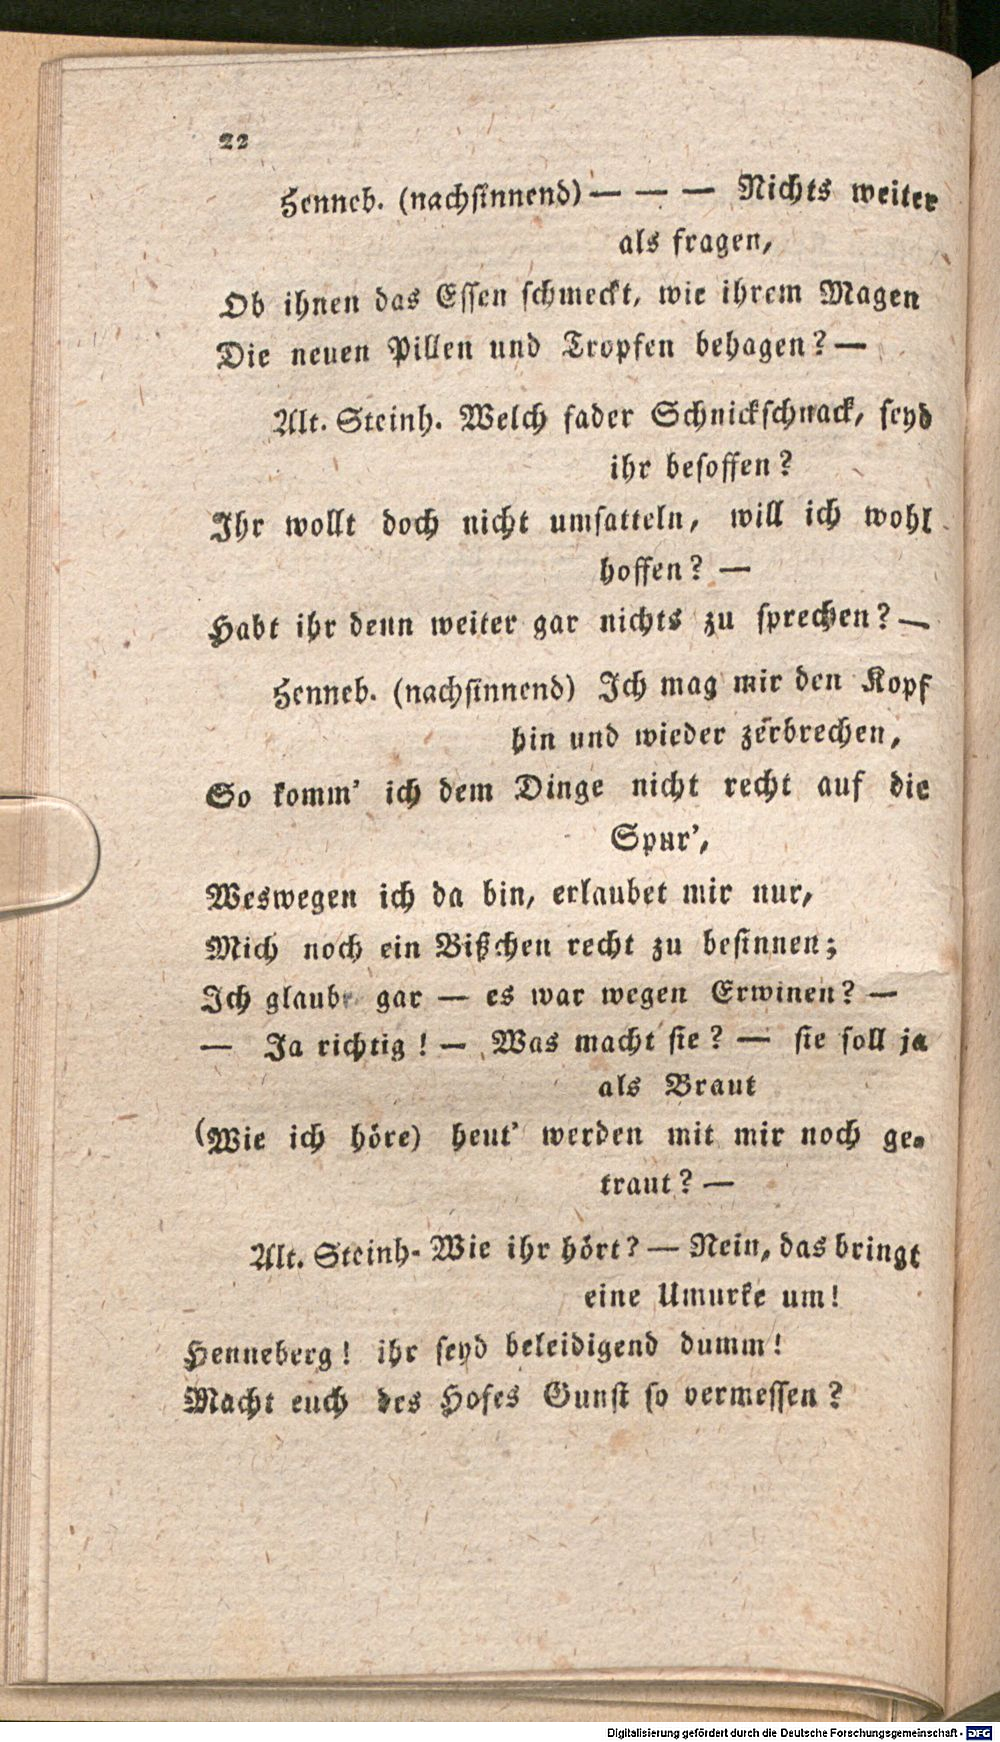 22
Henneb. (nachsinnend) — — — Nichts weiter
als fragen,
Ob ihnen das Essen schmeckt, wie ihrem Magen
Die neuen Pillen und Tropfen behagen? —
Alt. Steinh. Welch fader Schnickschnack, seyd
ihr besoffen?
Ihr wollt doch nicht umsatteln, will ich wohl
hoffen? —
Habt ihr denn weiter gar nichts zu sprechen? —
Henneb. (nachsinnend) Ich mag mir den Kopf
hin und wieder zerbrechen,
So komm' ich dem Dinge nicht recht auf die
Spur',
Weswegen ich da bin, erlaubet mir nur,
Mich noch ein Bißchen recht zu besinnen;
Ich glaube gar — es war wegen Erwinen? —
— Ja richtig! — Was macht sie? — sie soll ja
als Braut
(Wie ich höre) heut' werden mit mir noch ge-
traut? —
Alt. Steinh. Wie ihr hört? — Nein, das bringt
eine Umurke um!
Henneberg! ihr seyd beleidigend dumm!
Macht euch des Hofes Gunst so vermessen?
Digitalisierung gefördert durch die Deutsche Forschungsgemeinschaft - DFG